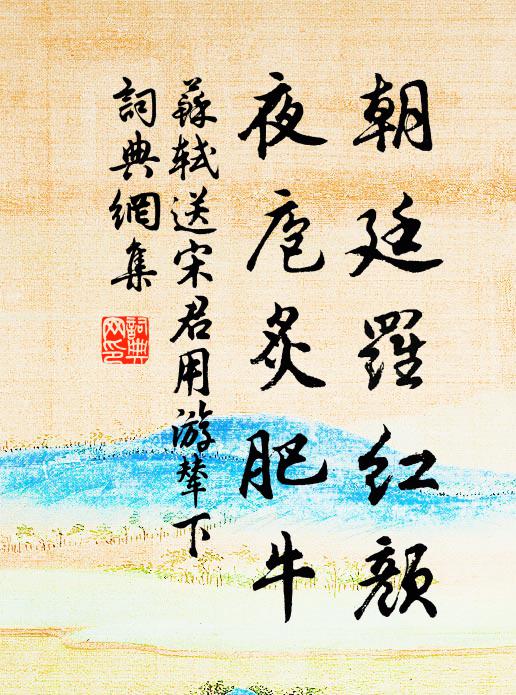 朝廷羅紅顏
夜庖炙肥牛
蘇軾送宋君用游輦下
詞典網集
詞典網印